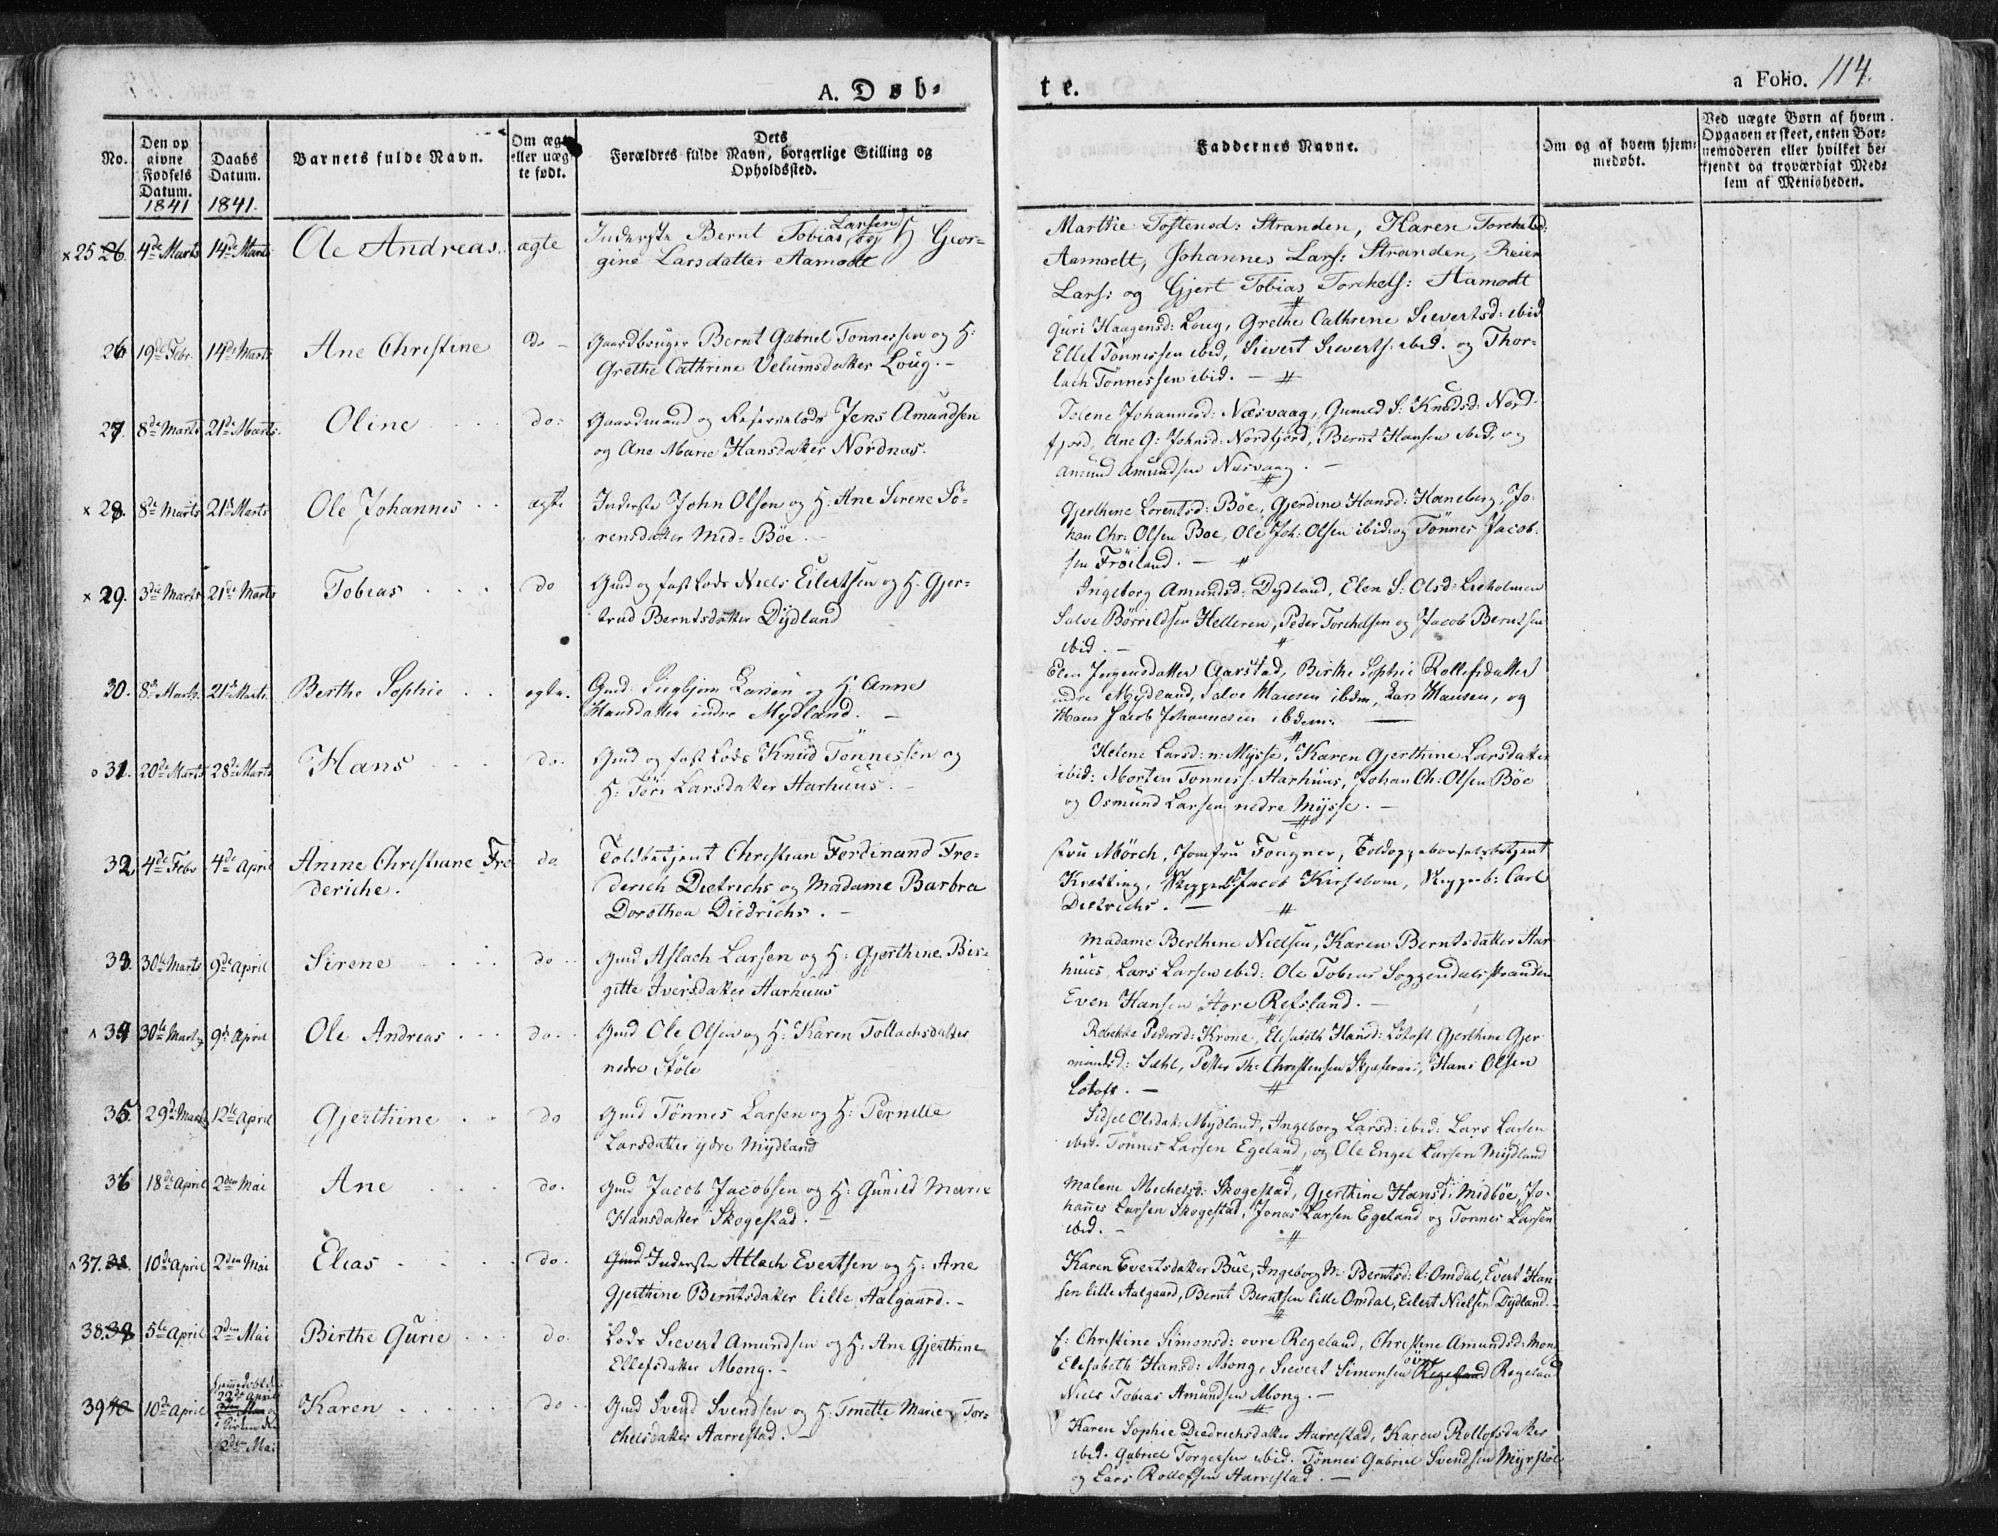 A. Døb-
te.
a Folio. 114.
No.
Den opgivne Fødsels Datum. 1841
Daabs Datum. 1841.
Barnets fulde Navn.
Om ægte eller uægte født.
Dets Forældres fulde Navn, borgerlige Stilling og Opholdssted.
Faddernes Navne.
Om og af hvem hjemmedøbt.
Ved uægte Børn af hvem Opgaven er skeet, enten Barnemoderen eller hvilket bekjendt og troværdigt Medlem af Menigheden.
x 25 26. 4de Marts 14de Marts Ole Andreas. ægte
Inderste Bernt Tobias Larsen og H Geor-
gine Larsdatter Aamodt
Marthe Tostensd: Stranden, Karen Torchelsd:
Aamodt, Johannes Lars: Stranden, Reier
Lars: og Gjert Tobias Torchels: Aamodt
26 19de Febr. 14de Marts Ane Christine do -
Gaardbruger Bernt Gabriel Tonnessen og H:
Grethe Cathrine Velumsdatter Loug. -
Guri Haagensd: Loug, Grethe Cathrine Sievertsd: ibid
Ellef Tønnessen ibid, Sievert Sieverts: ibid. og Thor-
lach Tönnessen ibid. -
27. 8de Marts 21de Marts. Oline do:
Gaardmand og Reservelods Jens Amundsen
og Ane Marie Hansdatter Nordnæs.
Johannesd: Næsvaag, Gunild S: Knudsd: Nord-
fjord, Ane G: Johnsd: Nordfjord, Bernt Hansen ibid, og
Amund Amundsen Næsvaag. -
x 28. 8de Marts 21de Marts Ole Johannes ægte
Inderste John Olsen og H: Ane Sirene Sö-
rensdatter Mid-Böe.
Gjerthine Lorentsd: Böe, Gjerdine Hansd: Haneberg, Jo-
han Chr: Olsen Boe, Ole Joh: Olsen ibid: og Tönnes Jacob-
sen Fröiland. -
x 29. 3die Marts 21de Marts Tobias do
Gmd og fast Lods Niels Eilertsen og H. Gjer-
trud Berntsdatter Dÿdland
Ingeborg Amundsd: Dydland, Elen S: Olsd: Lieholmen
Salve Börrildsen Helleren, Peder Torchelsen og Jacob Berntsen
ibid. -
30. 8de Marts. 21de Marts. Berthe Sophie ægte.
Gmd: Siegbjørn Larsen og H: Anne
Hansdatter indre Mydland. -
Elen Jorgensdatter Aarstad, Birthe Sophie Rollefsdatter
indre Mydland, Salve Hansen ibdm, Lars Hansen, og
Hans Jacob Johannesen ibdem.
o 31. 20de Marts 28de Marts Hans do.
Gmd og fast Lods Knud Tönnessen og
H: Töri Larsdatter Aarhuus.
Helene Larsd: n: Mysse, Karen Gjerthine Larsdatter
ibid: Morten Tonness: Aarhuus, Johan Ch: Olsen Böe
og Osmund Larsen nedre Mÿsse. -
32 4de Febr 4de April Anine Christiane Fre-
deriche. do.
Toldbetjent Christian Ferdinand Fre-
derich Dietrichs og Madame Barbra
Dorothea Diedrichs. -
Fru Mörch, Jomfru Fougner, Told og
Kretting, Skipper Jacob Kirsebom, Skipper: Carl
Dietrichs. -
33. 30te Marts 9de April Sirene do
Gmd Aslach Larsen og H: Gjerthine Bir-
gitte Iversdatter Aarhuus
Madame Berthine Nielsen, Karen Berntsdatter Aar-
huus, Lars Larsen ibid: Ole Tobias Soggendalsstranden
Even Hansen Store Refsland. -
34 30te Marts 9de April Ole Andreas do.
Gmd Ole Olsen og H: Karen Tollachsdatter
nedre Stöle
Rebekke Pedersd: Krone, Elisabeth Hansd: Lotoft Gjerthine Gjer-
mundsd: Sæhl, Peter Th: Christensen, Hans Olsen
Lotoft. -
35. 29de Marts 12te April Gjerthine do
Gmd Tönnes Larsen og H: Pernille
Larsdatter ydre Mÿdland
Sidsel Olsdat: Mÿdland, Ingeborg Larsd: ibid: Lars Larsen
ibid: Tönnes Larsen Egeland, og Ole Engel Larsen Mÿdland
36 18de April 2den Mai Ane do.
Gmd Jacob Jacobsen og H: Gunild Marie
Hansdatter Skogestad. -
Malene Michelsd: Skogestad, Gjerthine Hansd: Midböe, Jo-
hannes Larsen Skogestad, Jonas Larsen Egeland og Tonnes Larsen
ibid. -
37. 38. 10de April 2den Mai Elias do.
Gmd Inderste Atlach Evertsen og H: Ane
Gjerthine Berntsdatter lille Aalgaard. -
Karen Evertsdatter Bue, Ingeborg M: Berntsd: l: Omdal, Evert Han-
sen lille Aalgaard, Bernt Berntsen lille Omdal, Eilert Nielsen Dÿdland. -
38. 39 5te April 2den Mai Birthe Gurie do.
Lods Sievert Amundsen og H: Ane Gjerthine
Ellefsdatter Mong. -
E: Christine Simonsd: ovre Regeland, Christine Amundsd: Mong
Elisabeth Hansd: Mong, Sievert Simonsen övre Regeland
Niels Tobias Amundsen Mong. -
39 40 10de April
22de April
2den Mai
Karen do
Gmd Svend Svendsen og H: Tonette Marie Tor-
chelsdatter Aarrestad. -
Karen Sophie Diedrichsdatter Aarrestad, Karen Rollofsdatter
ibid. Gabriel Torgersen ibid. Tönnes Gabriel Svendsen Mÿrstöl
og Lars Rollefsen Aarrestad. -